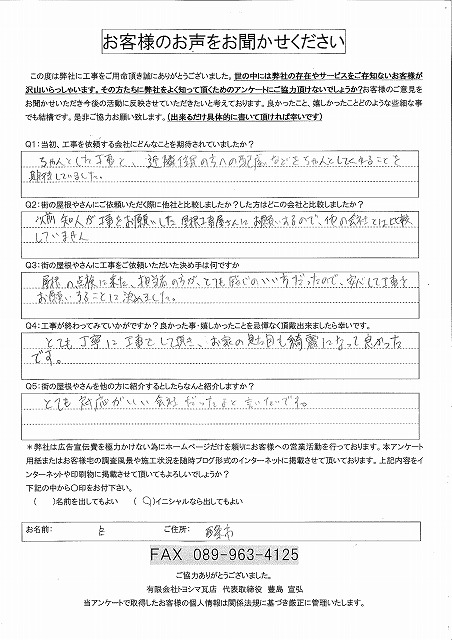 お客様のお声をお聞かせください
この度は弊社に工事をご用命頂き誠にありがとうございました。世の中には弊社の存在やサービスをご存知ないお客様が
沢山いらっしゃいます。その方たちに弊社をよく知って頂くためのアンケートにご協力頂けないでしょうか?お客様のご意見を
お聞かせいただき今後の活動に反映させていただきたいと考えております。良かったこと、嬉しかったことどのような些細な事
でも結構です。是非ご協力お願い致します。(出来るだけ具体的に書いて頂ければ幸いです)
Q1:当初、工事を依頼する会社にどんなことを期待されていましたか?
ちゃんとした工事と、近隣住民の方への配慮などをちゃんとしてくれることを
期待していました。
Q2:街の屋根やさんにご依頼いただく際に他社と比較しましたか?した方はどこの会社と比較しましたか?
以前知人が工事をお願いした屋根工事屋さんにお願いするので、他の会社とは比較
していません
Q3:街の屋根やさんに工事をご依頼いただいた決め手は何ですか
屋根の点検に来た、担当の方が、とても感じのいい方だったので、安心して工事を
お願いすることに決めました。
Q4:工事が終わってみていかがですか?良かった事・嬉しかったことを忌憚なく頂戴出来ましたら幸いです。
とても丁寧に工事をして頂き、お家の見た目も綺麗になって良かった
です。
Q5:街の屋根やさんを他の方に紹介するとしたらなんと紹介しますか?
とても対応がいい会社だったよと言いたいです。
*弊社は広告宣伝費を極力かけない為にホームページだけを頼りにお客様への営業活動を行っております。本アンケート
用紙またはお客様宅の調査風景や施工状況を随時ブログ形式のインターネットに掲載させて頂いております。上記内容をイ
ンターネットや印刷物に掲載させて頂いてもよろしいでしょうか?
下記の中から〇印をお付下さい。
( )名前を出してもよい (〇)イニシャルなら出してもよい
お名前: ご住所:
FAX 089-963-4125
ご協力ありがとうございました。
有限会社トヨシマ瓦店 代表取締役 豊島 宣弘
当アンケートで取得したお客様の個人情報は関係法規に基づき厳正に管理いたします。